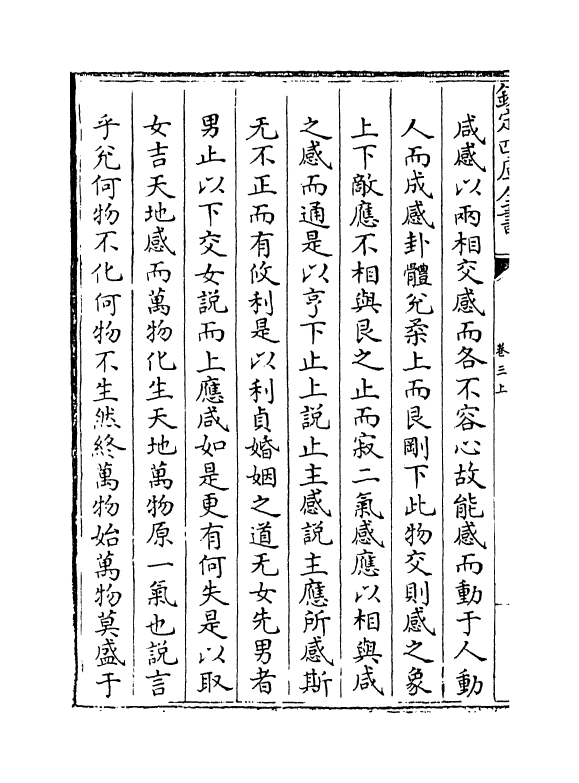 欽定四庫全書
卷三上
咸感以兩相交感而各不容心故能感而動于人動
人而成感卦體兊柔上而艮剛下此物交則感之象
上下敵應不相與艮之止而寂二氣感應以相與咸
之感而通是以亨下止上說止主感說主應所感斯
无不正而有攸利是以利貞婚姻之道无女先男者
男止以下交女說而上應咸如是更有何失是以取
女吉天地感而萬物化生天地萬物原一氣也說言
乎兊何物不化何物不生然終萬物始萬物莫盛于